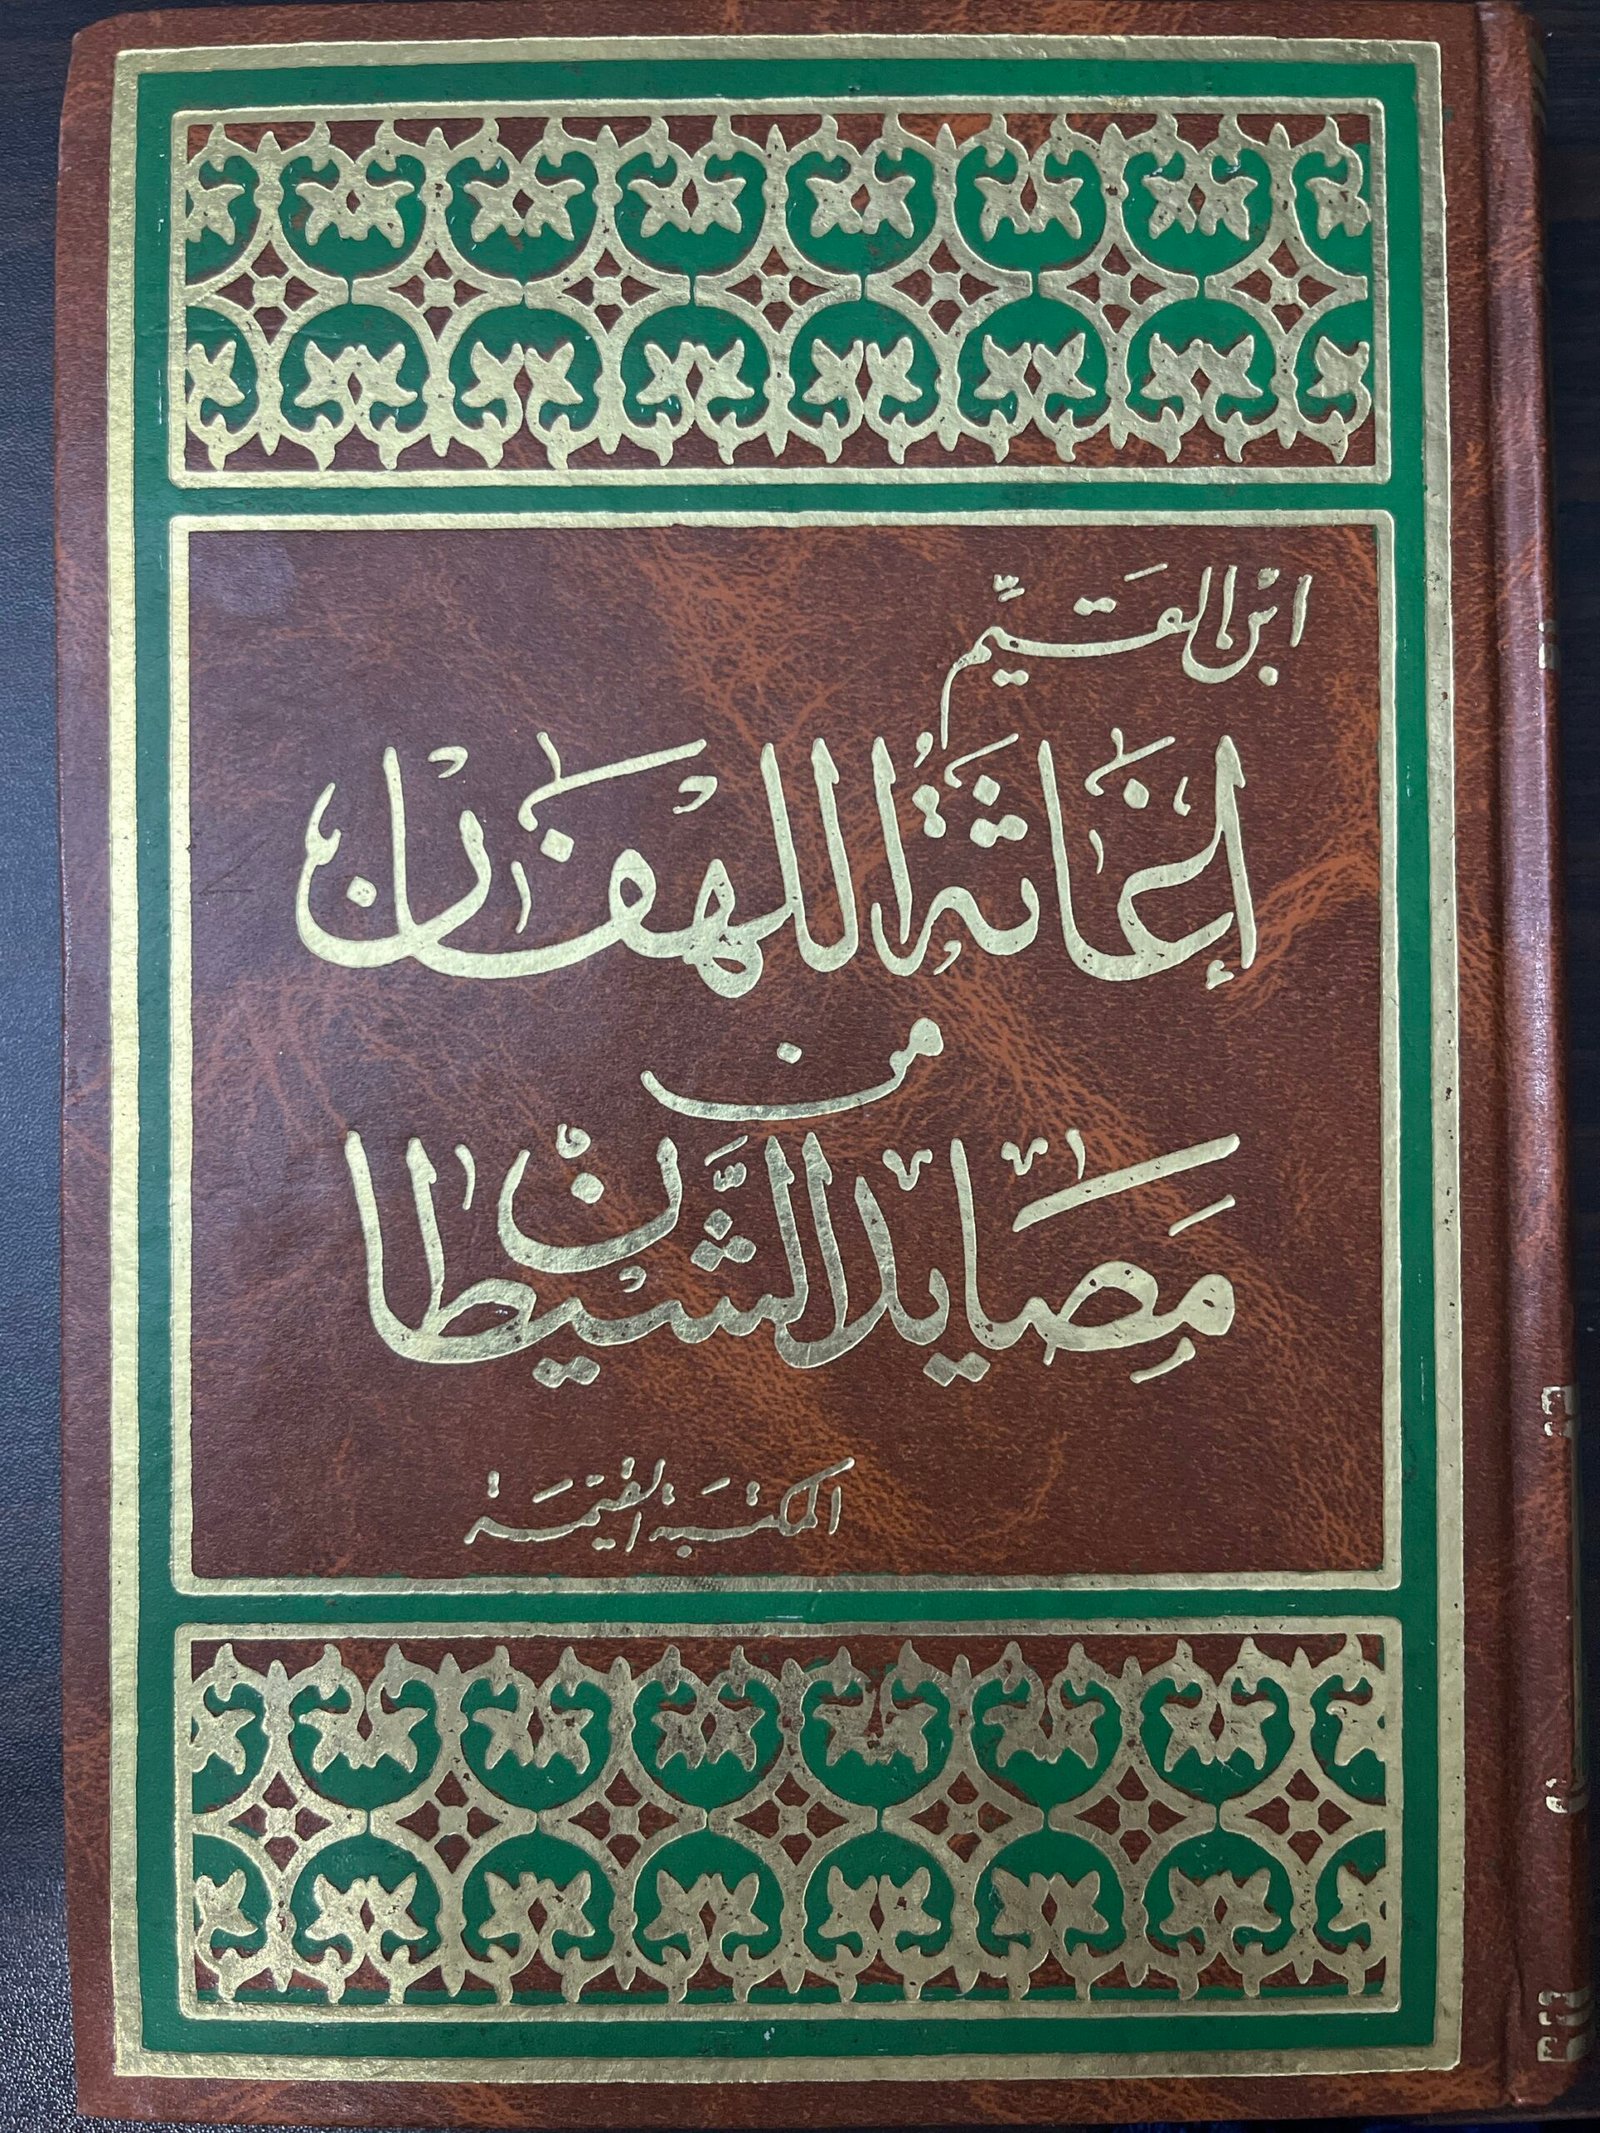 ابْن القَيِّم
إِغَاثَةُ اللهْفَان
من
مَصَايِد الشَّيْطَان
المكتبَة القيّمَة